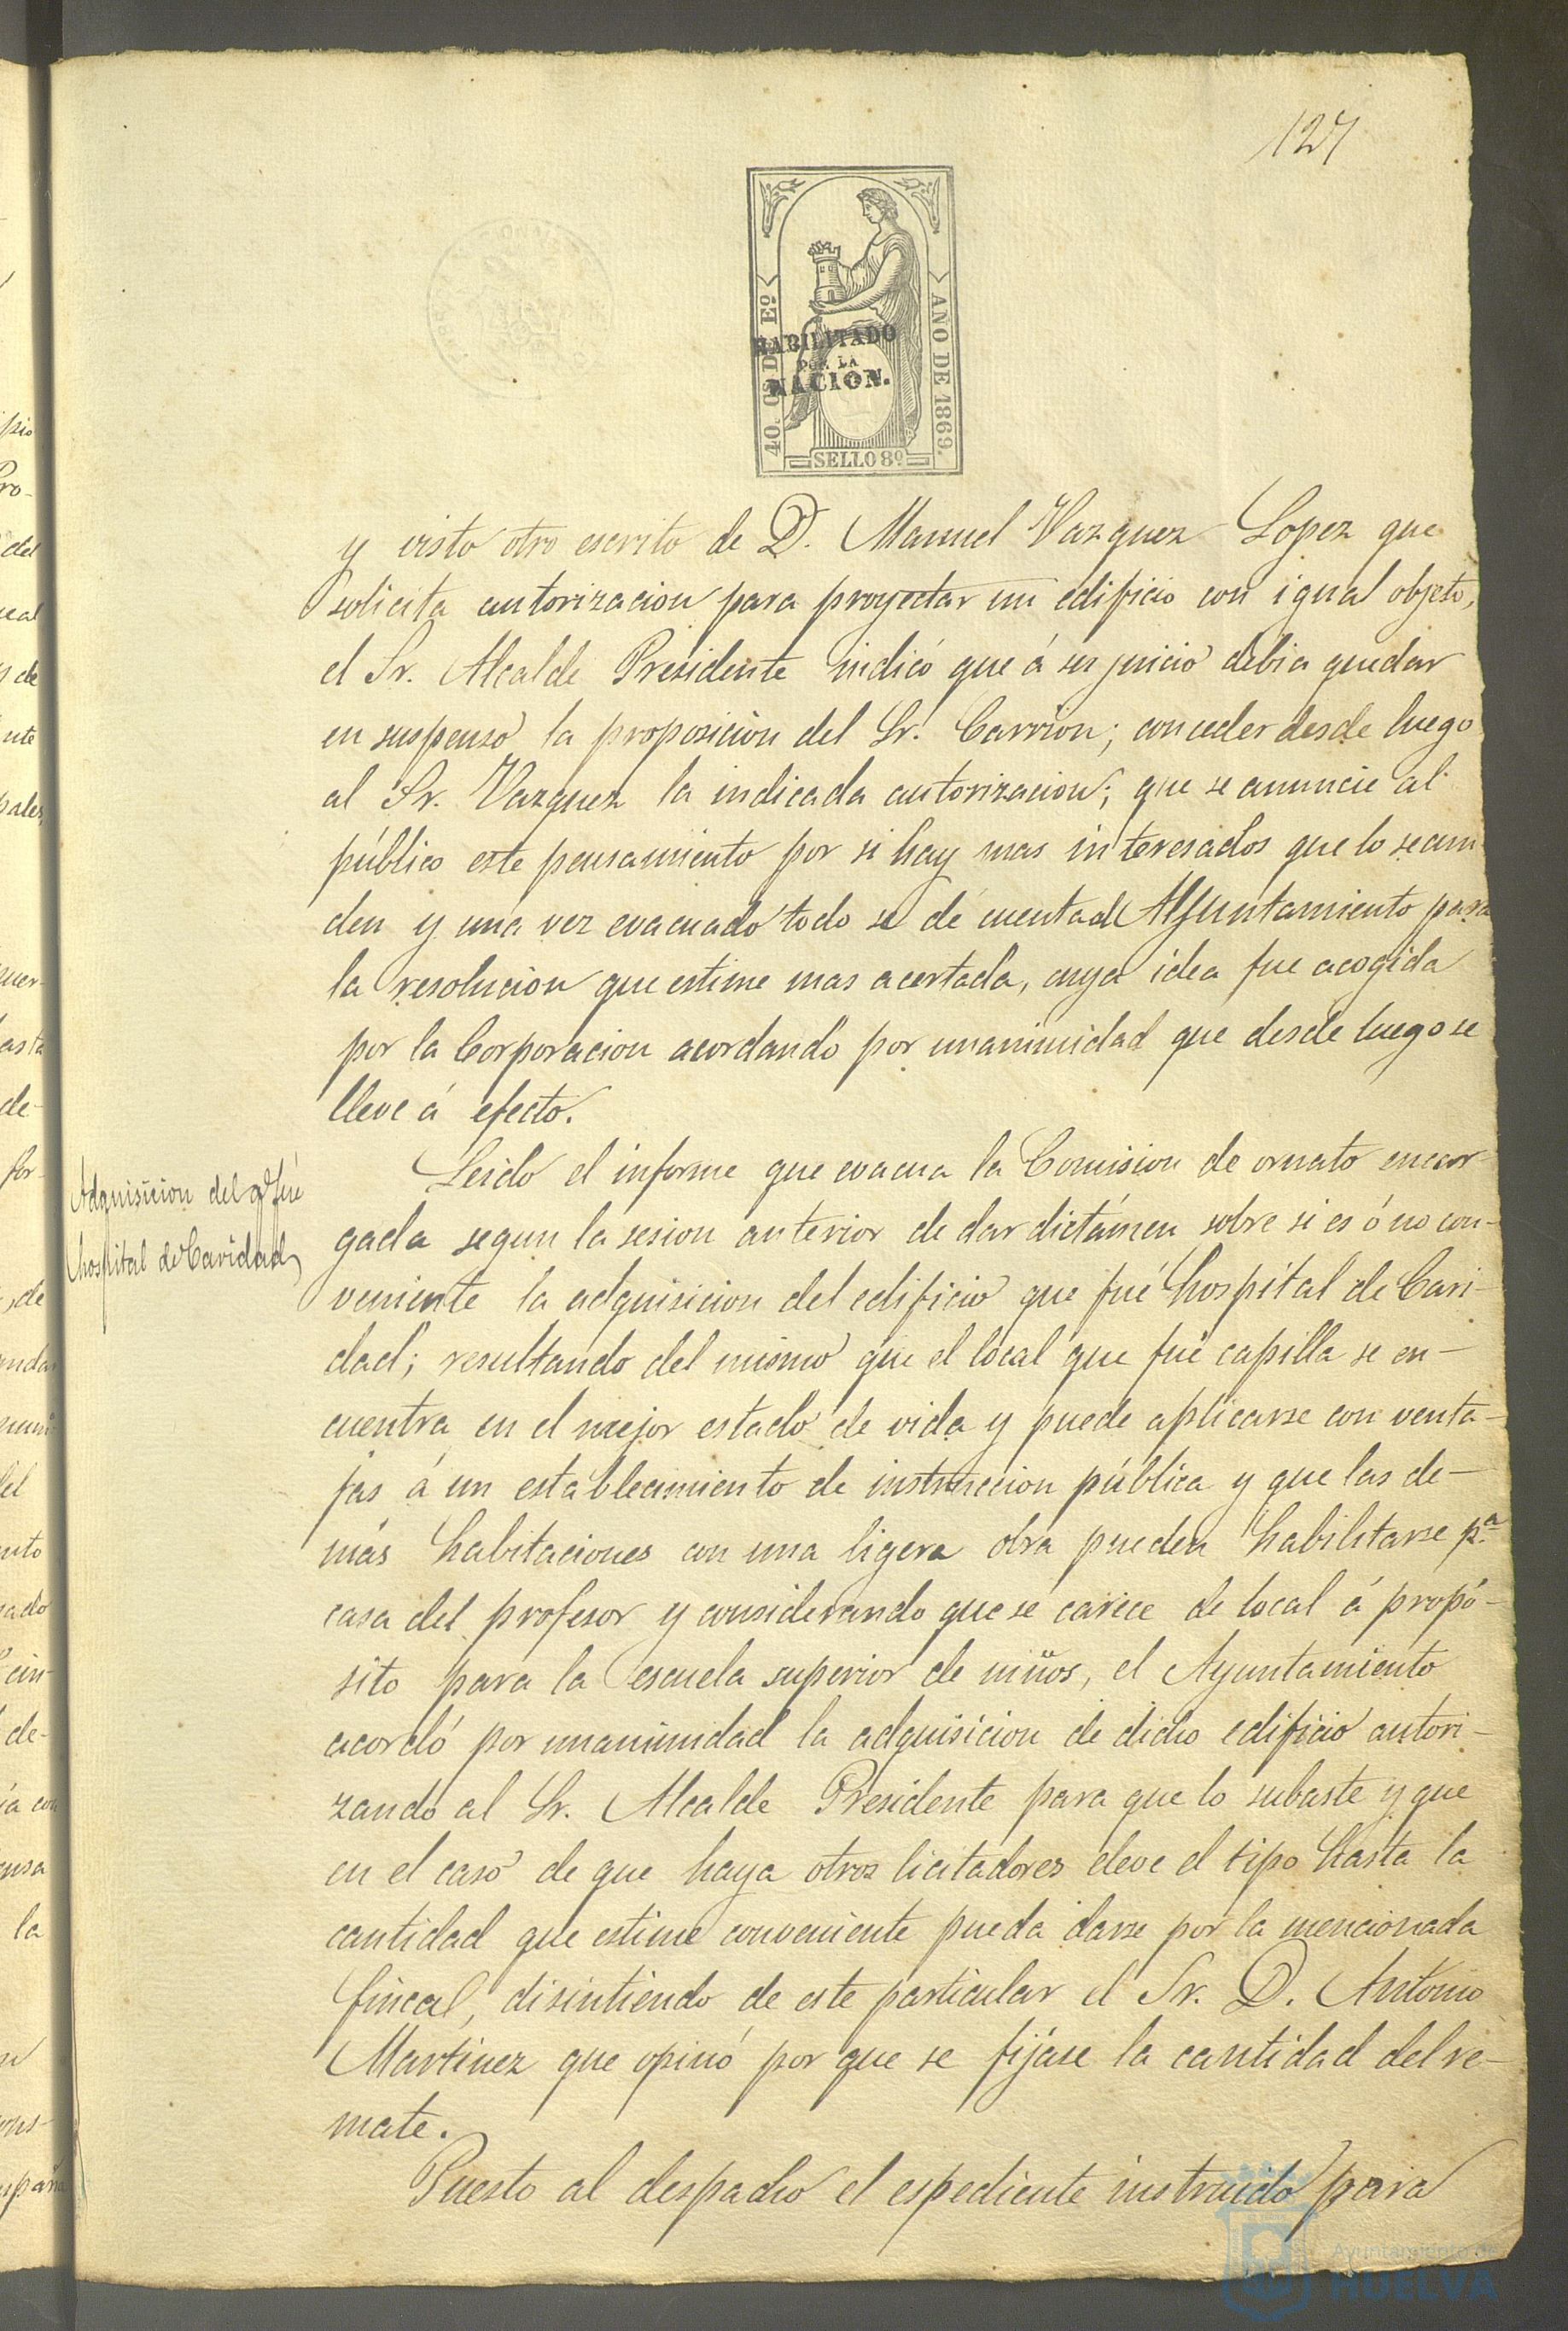 127
40. Cs DE Eº
AÑO DE 1869.
HABILITADO
POR LA
NACION.
SELLO 8º
y visto otro escrito de D. Manuel Vazquez Lopez que
solicita autorizacion para proyectar un edificio con igual objeto,
el Sr. Alcalde Presidente indicó que á su juicio debia quedar
en suspenso la proposicion del Sr. Carrion; conceder desde luego
al Sr. Vazquez la indicada autorizacion; que se anuncie al
público este pensamiento por si hay mas interesados que lo secun
den y una vez evacuado todo se dé cuenta al Ayuntamiento para
la resolucion que estime mas acertada, cuya idea fue acogida
por la Corporacion acordando por unanimidad que desde luego se
lleve á efecto.
Adquisicion del q.e fué
hospital de Caridad
Leido el informe que evacua la Comision de ornato encar-
gada segun la sesion anterior de dar dictámen sobre si es ó no con-
veniente la adquisicion del edificio que fué hospital de Cari-
dad; resultando del mismo que el local que fué capilla se en-
cuentra en el mejor estado de vida y puede aplicarse con venta-
jas á un establecimiento de instruccion pública y que las de-
más habitaciones con una ligera obra pueden habilitarse p.a
casa del profesor y considerando que se carece de local á propó-
sito para la escuela superior de niños, el Ayuntamiento
acordó por unanimidad la adquisicion de dicho edificio autori-
zando al Sr. Alcalde Presidente para que lo subaste y que
en el caso de que haya otros licitadores eleve el tipo hasta la
cantidad que estime conveniente pueda darse por la mencionada
finca, disintiendo de este particular el Sr. D. Antonio
Martinez que opinó por que se fijáse la cantidad del re-
mate.
Puesto al despacho el espediente instruido para
Ayuntamiento de
HUELVA